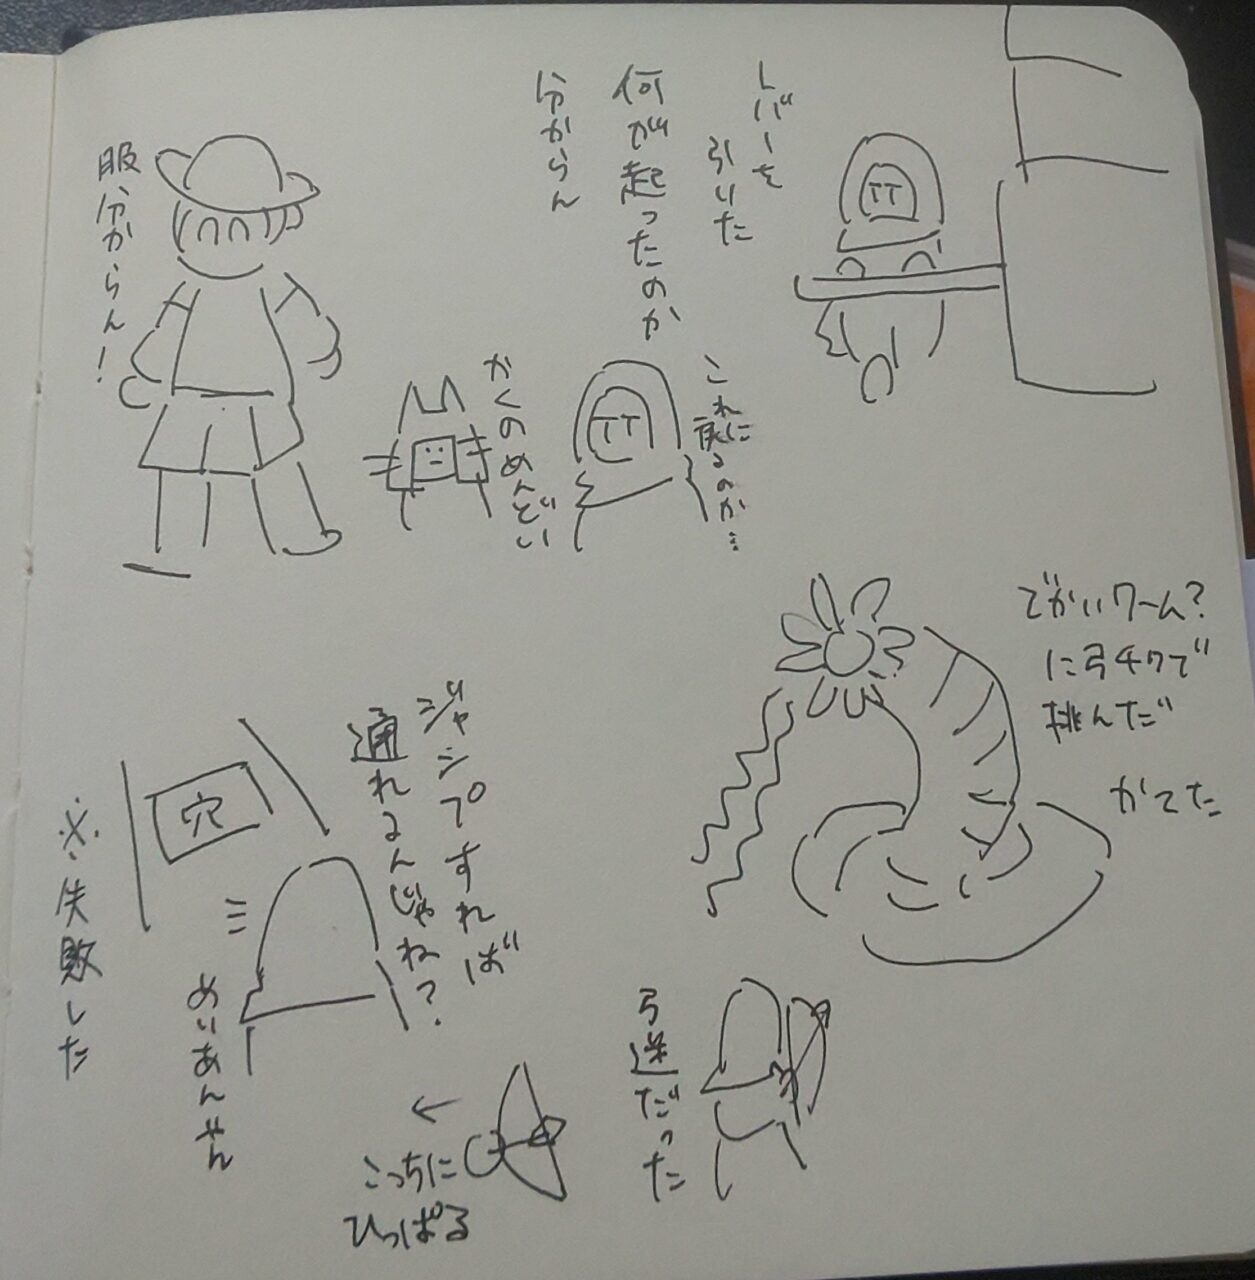 レバーを
引いた
何が起ったのか
分からん
服分からん!
これに
戻るのか…
かくのめんどい
でかいワーム?
に弓チクで
挑んだ
かてた
ジャンプすれば
通れるんじゃね?
穴
めりあんやん
※失敗した
弓逆だった
←
こっちに
ひっぱる